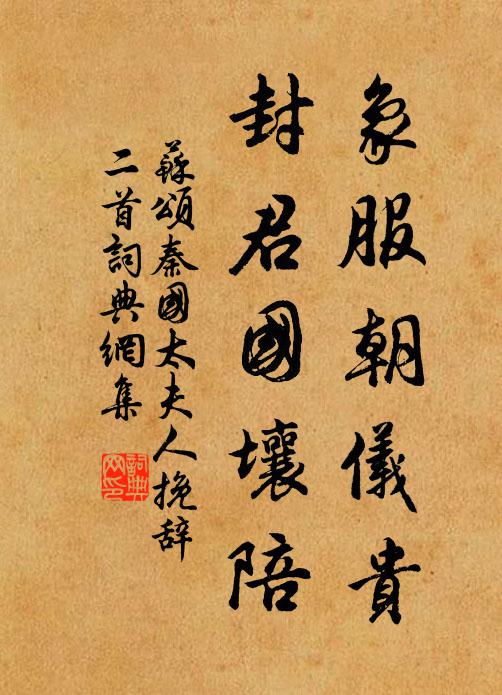 象服朝儀貴
封君國壤陪
蘇頌秦國太夫人挽辞
二首詞典網集
詞典
网印